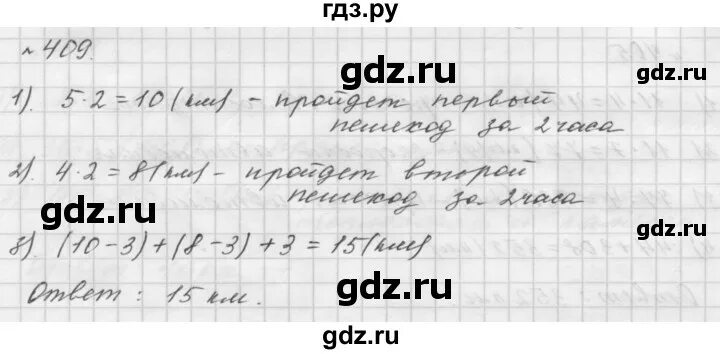 гдз.ру
№ 409.
1). 5·2=10(км) - пройдет первый
пешеход за 2 часа
2). 4·2=8(км) - пройдет второй
пешеход за 2 часа
3). (10-3)+(8-3)+3=15(км)
Ответ: 15 км.
gdz.ru
gdz.ru
gdz.ru
gdz.ru
gdz.ru
gdz.ru